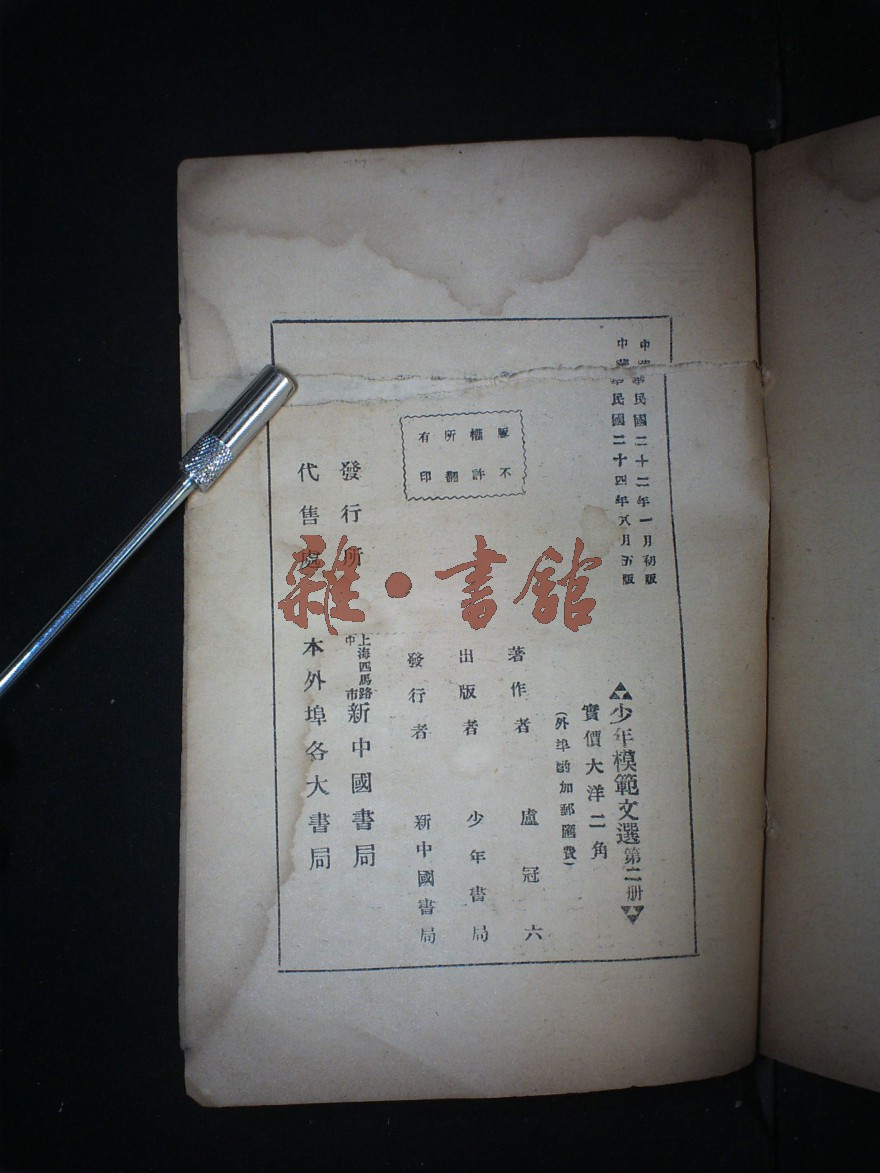 中華民國二十二年一月初版
中華民國二十四年八月五版
少年模範文選第二册
實價大洋二角
(外埠酌加郵匯費)
著作者 盧冠六
出版者 少年書局
發行者 新中國書局
版權所有
不許翻印
發行所 上海四馬路中市 新中國書局
代售處 本外埠各大書局
雜·書舘